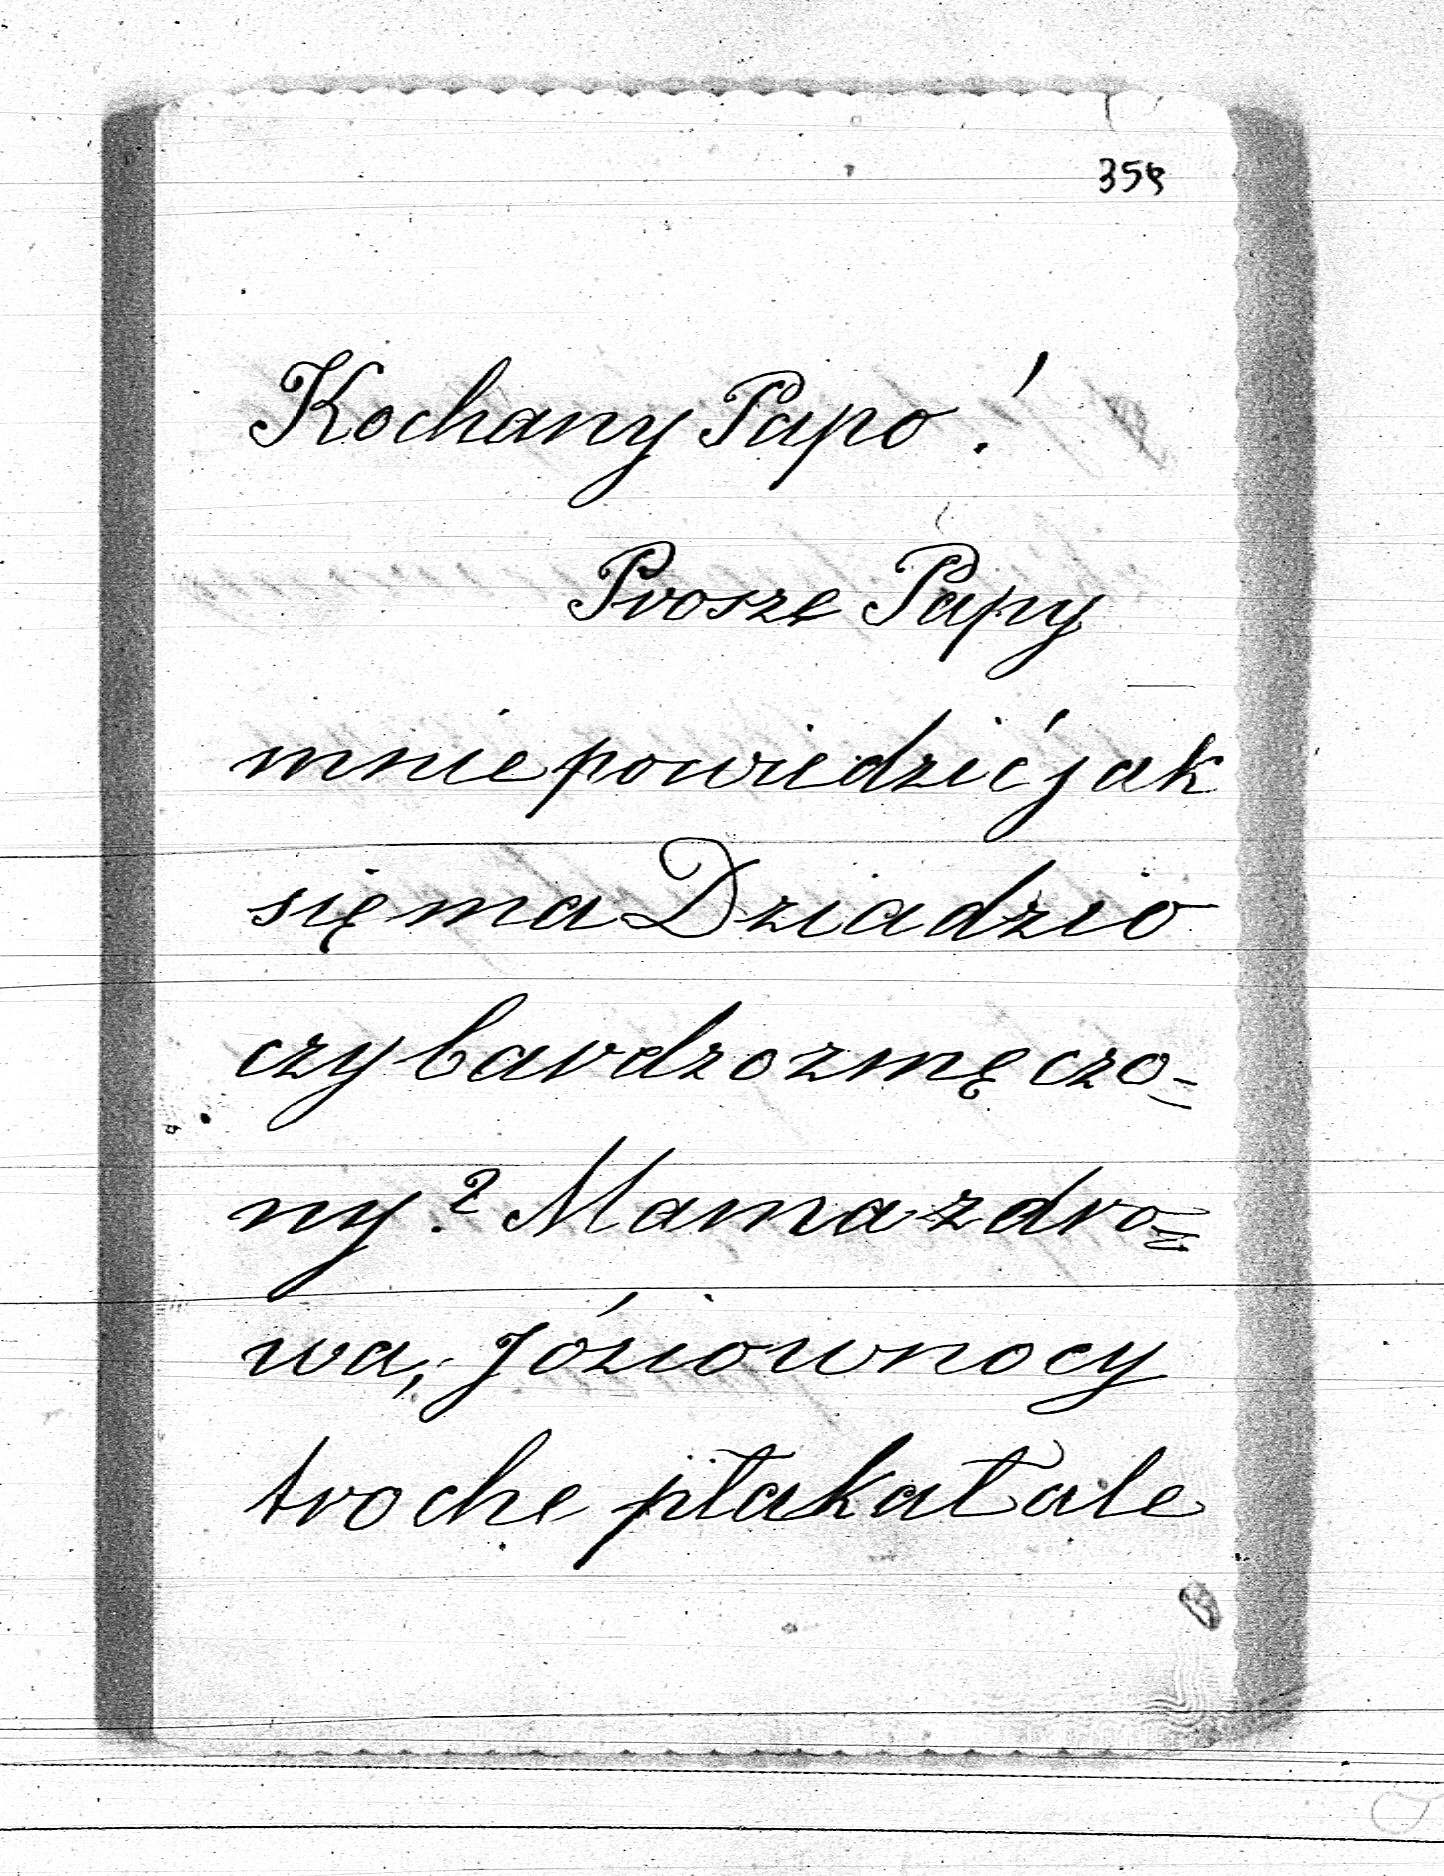 Kochany Papo!
Prosze Papy
mnie powiedzić jak
się ma Dziadzio
czy bardzo zmęczo-
ny? Mama zdro=
wa, Józio w nocy
troche płakał ale